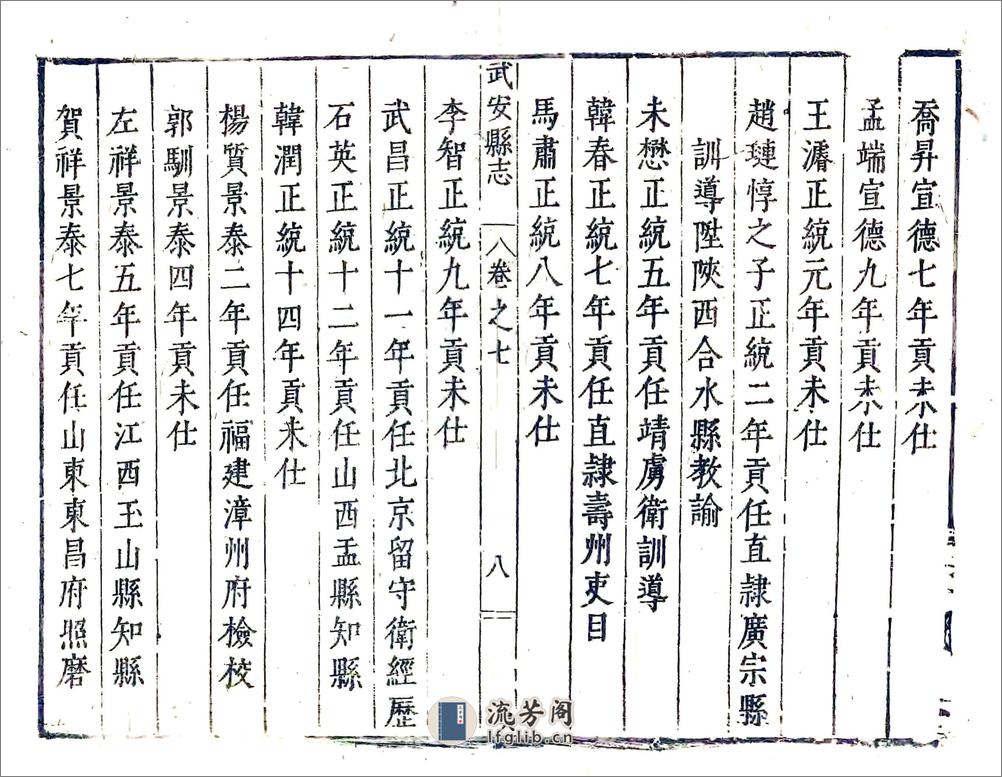 喬昇宣德七年貢未仕
孟端宣德九年貢未仕
王濬正統元年貢未仕
趙璉惇之子正統二年貢任直隷廣宗縣
訓導陞陝西合水縣教諭
未懋正統五年貢任靖虜衛訓導
韓春正統七年貢任直隷壽州吏目
馬肅正統八年貢未仕
武安縣志 卷之七 八
李智正統九年貢未仕
武昌正統十一年貢任北京留守衛經歷
石英正統十二年貢任山西盂縣知縣
韓潤正統十四年貢未仕
楊質景泰二年貢任福建漳州府檢校
郭馴景泰四年貢未仕
左祥景泰五年貢任江西玉山縣知縣
賀祥景泰七年貢任山東東昌府照磨
流芳阁
lfglib.cn